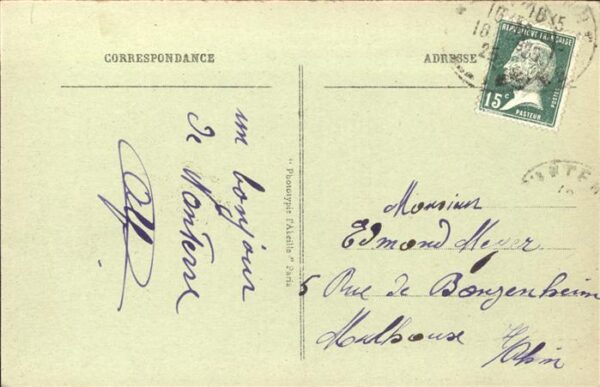 CORRESPONDANCE
un bonjour
de Nanterre
" Phototypie l'Abeille " Paris
ADRESSE
REPUBLIQUE FRANÇAISE
POSTES
15c
PASTEUR
Monsieur
Edmond Meyer
5 Rue de Bonzenheim
Mulhouse
H/Rhin